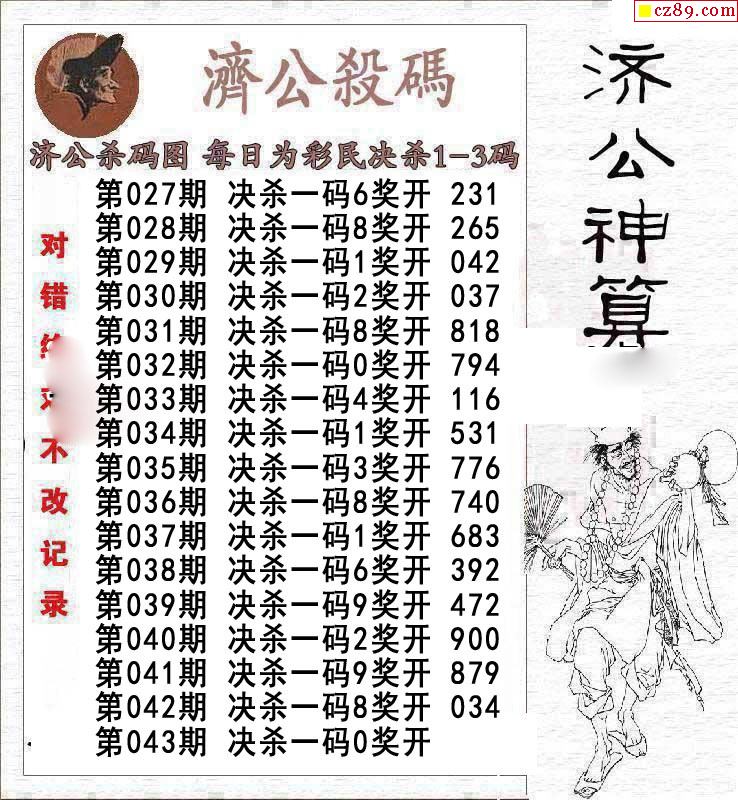 cz89.com
濟公殺碼
济公杀码图 每日为彩民决杀1-3码
第027期 决杀一码6奖开 231
第028期 决杀一码8奖开 265
第029期 决杀一码1奖开 042
第030期 决杀一码2奖开 037
第031期 决杀一码8奖开 818
第032期 决杀一码0奖开 794
第033期 决杀一码4奖开 116
第034期 决杀一码1奖开 531
第035期 决杀一码3奖开 776
第036期 决杀一码8奖开 740
第037期 决杀一码1奖开 683
第038期 决杀一码6奖开 392
第039期 决杀一码9奖开 472
第040期 决杀一码2奖开 900
第041期 决杀一码9奖开 879
第042期 决杀一码8奖开 034
第043期 决杀一码0奖开
对错不改记录
济公神算